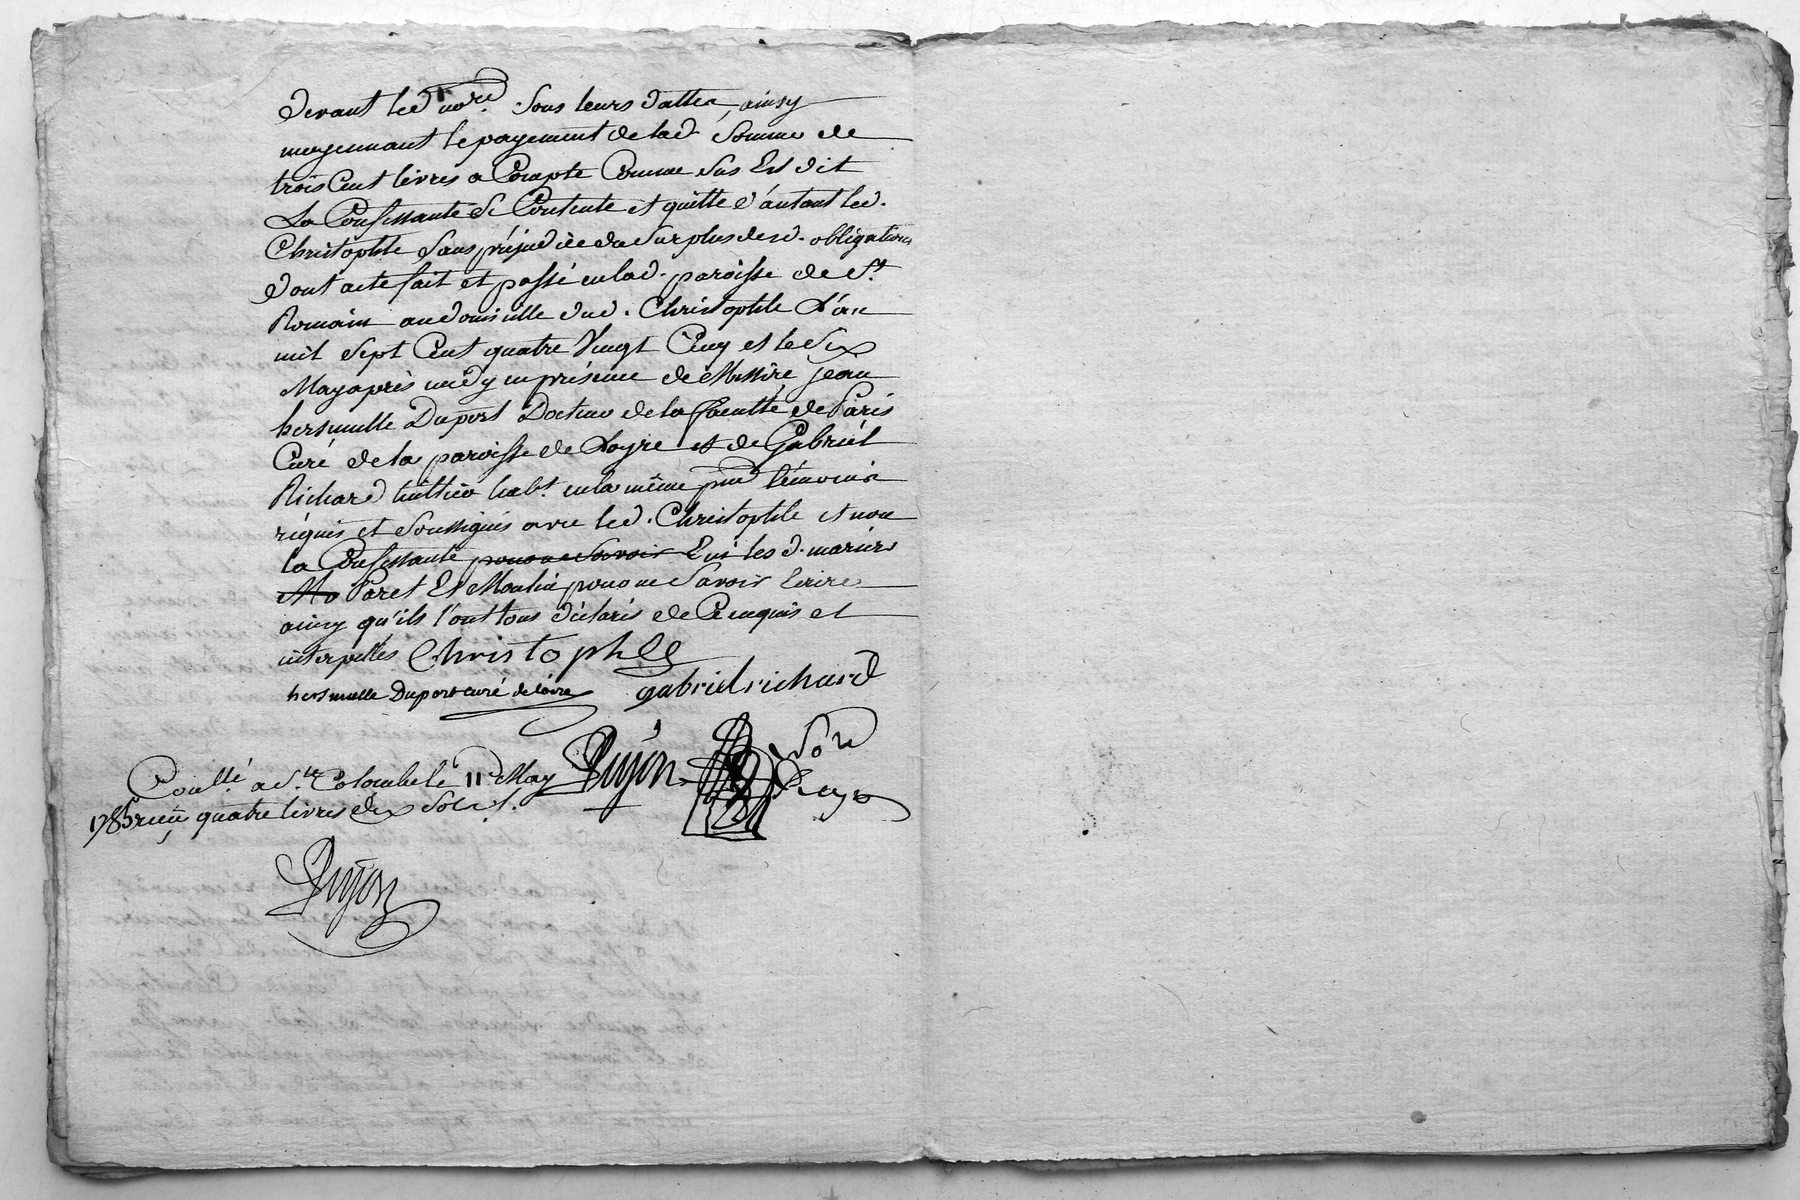 devant led nore. sous leurs dattes, ainsy
moyennant le payement de lad. somme de
trois Cent livres a Compte Comme sus Est dit
La Confessante se Contente et quitte d'autant led.
Christophle sans préjudice du surplus desd. obligations
dont acte fait et passé en lad. paroisse de St.
Romain au domicille dud. Christophle L'an
mil sept Cent quatre Vingt Cinq et le Six
May après midy en présence de Messire jean
hersmulle Duport Docteur de la faculté de Paris
Curé de la paroisse de Loyre et de Gabriel
Richard habt. en la même témoins
réquis et soussignés avec led. Christophle et non
la Confessante pour ne savoir Eni les d. mariés
Mo Paret Et Moulin pour ne savoir Ecrire
ainsy qu'ils l'ont tous déclaré de Ce enquis et
interpellés Christophle
hersmulle Duport curé de loire gabriel richard
Dujon nore Royal
Conllé. a Ste. Colombe le 11 May
1785 reçu quatre livres dix sols
Dujon